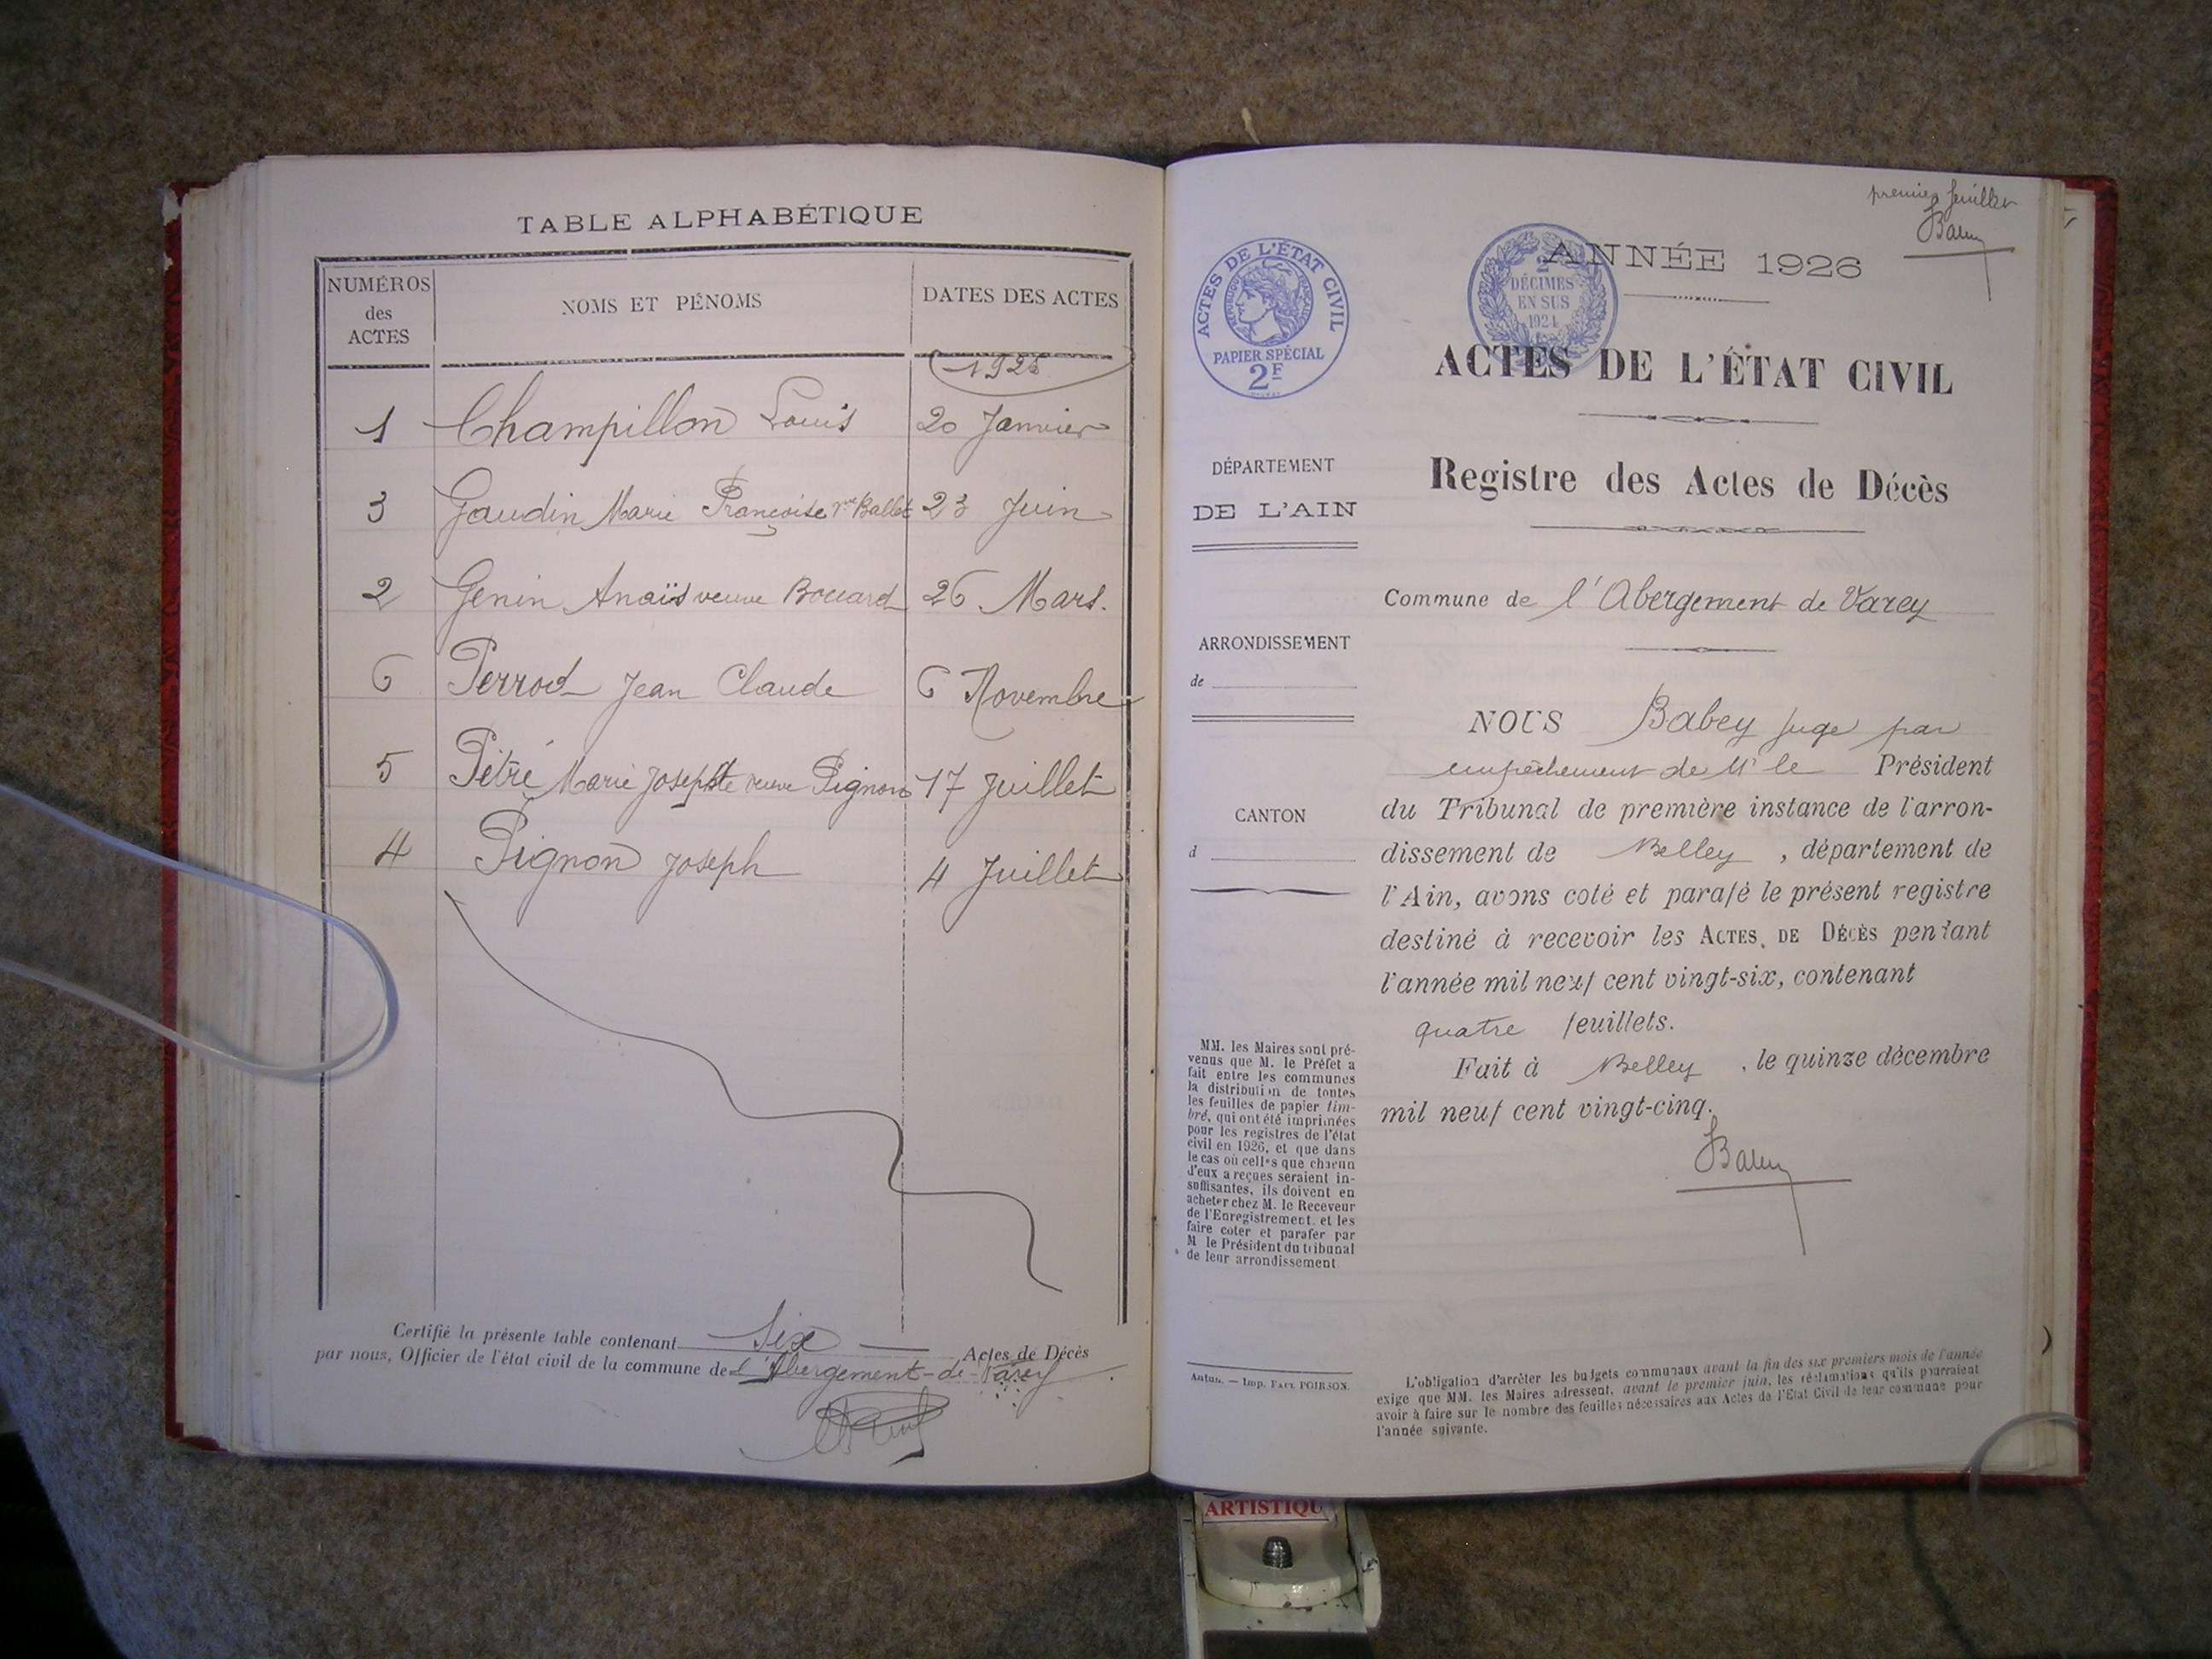 TABLE ALPHABÉTIQUE
NUMÉROS
des
ACTES
NOMS ET PÉNOMS
DATES DES ACTES
1925
1 Champillon Louis 20 Janvier
3 Gaudin Marie Françoise Vve Ballet 23 Juin
2 Genin Anaïs veuve Bouard 26 Mars.
6 Perrod Jean Claude 6 Novembre
5 Pétré Marie Josephte veuve Pignon 17 Juillet
4 Pignon Joseph 4 Juillet
Certifié la présente table contenant Six Actes de Décès
par nous, Officier de l'état civil de la commune de l'Abergement-de-Varey
premier feuillet
Babey
ACTES DE L'ÉTAT CIVIL
RÉPUBLIQUE FRANÇAISE
PAPIER SPÉCIAL
2F
2
DÉCIMES
EN SUS
1924
ANNÉE 1926
ACTES DE L'ÉTAT CIVIL
Registre des Actes de Décès
DÉPARTEMENT
DE L'AIN
ARRONDISSEMENT
de
CANTON
d
Commune de l'Abergement de Varey
NOUS Babey juge par
empêchement de Mr le Président
du Tribunal de première instance de l'arron-
dissement de Belley, département de
l'Ain, avons coté et parafé le présent registre
destiné à recevoir les ACTES DE DÉCÈS pendant
l'année mil neuf cent vingt-six, contenant
quatre feuillets.
Fait à Belley, le quinze décembre
mil neuf cent vingt-cinq.
Babey
MM. les Maires sont pré-
venus que M. le Préfet a
fait entre les communes
la distribution de toutes
les feuilles de papier tim-
bré, qui ont été imprimées
pour les registres de l'état
civil en 1926, et que dans
le cas où celles que chacun
d'eux a reçues seraient in-
suffisantes, ils doivent en
acheter chez M. le Receveur
de l'Enregistrement et les
faire coter et parafer par
M. le Président du tribunal
de leur arrondissement
Autun. — Imp. PAUL POIRSON.
L'obligation d'arrêter les budgets communaux avant la fin des six premiers mois de l'année
exige que MM. les Maires adressent, avant le premier juin, les réclamations qu'ils pourraient
avoir à faire sur le nombre des feuilles nécessaires aux Actes de l'Etat Civil de leur commune pour
l'année suivante.
ARTISTIQU